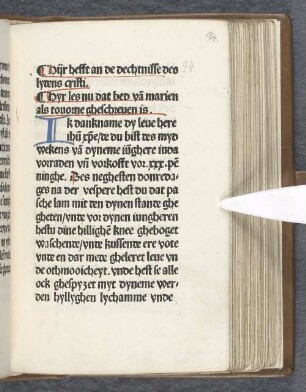 94
¶ Hijr hefft an de dechtnisse des
lydens cristi.
¶ Hyr les nu dat bed vā marien
als to nome ghescreuen is.
Ik dankname dy leue here
ihū xp̄e/de du bist des myd
wekens vā dyneme iūghere iuda
vorraden vn̄ vorkofft vor .xxx. pē
ninghe. Des neghesten donreda-
ges na der vespere hest du dat pa
sche lam mit den dynen stande ghe
gheten/vnde vor dynen iungheren
hestu dine hillighē knee gheboget
waschende/vnde kussende ere vote
vnde en dar mede gheleret leue vn
de othmodicheyt. vnde hest se alle
ock ghespyzet myt dyneme wer-
den hyllyghen lychamme vnde